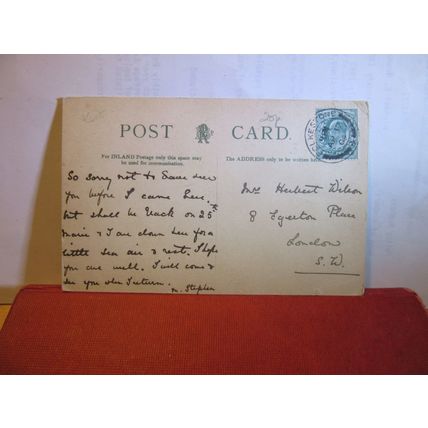 20p
POST CARD.
For INLAND Postage only this space may
be used for communication.
The ADDRESS only to be written here.
FOLKESTONE
So sorry not to have seen
you before I came here,
but shall be back on 25th
Marie & I are down here for a
little sea air & rest. I hope
you are well. I will come &
see you when I return.
M. Stephen
Mrs Herbert Wilson
8 Egerton Place
London
S.W.